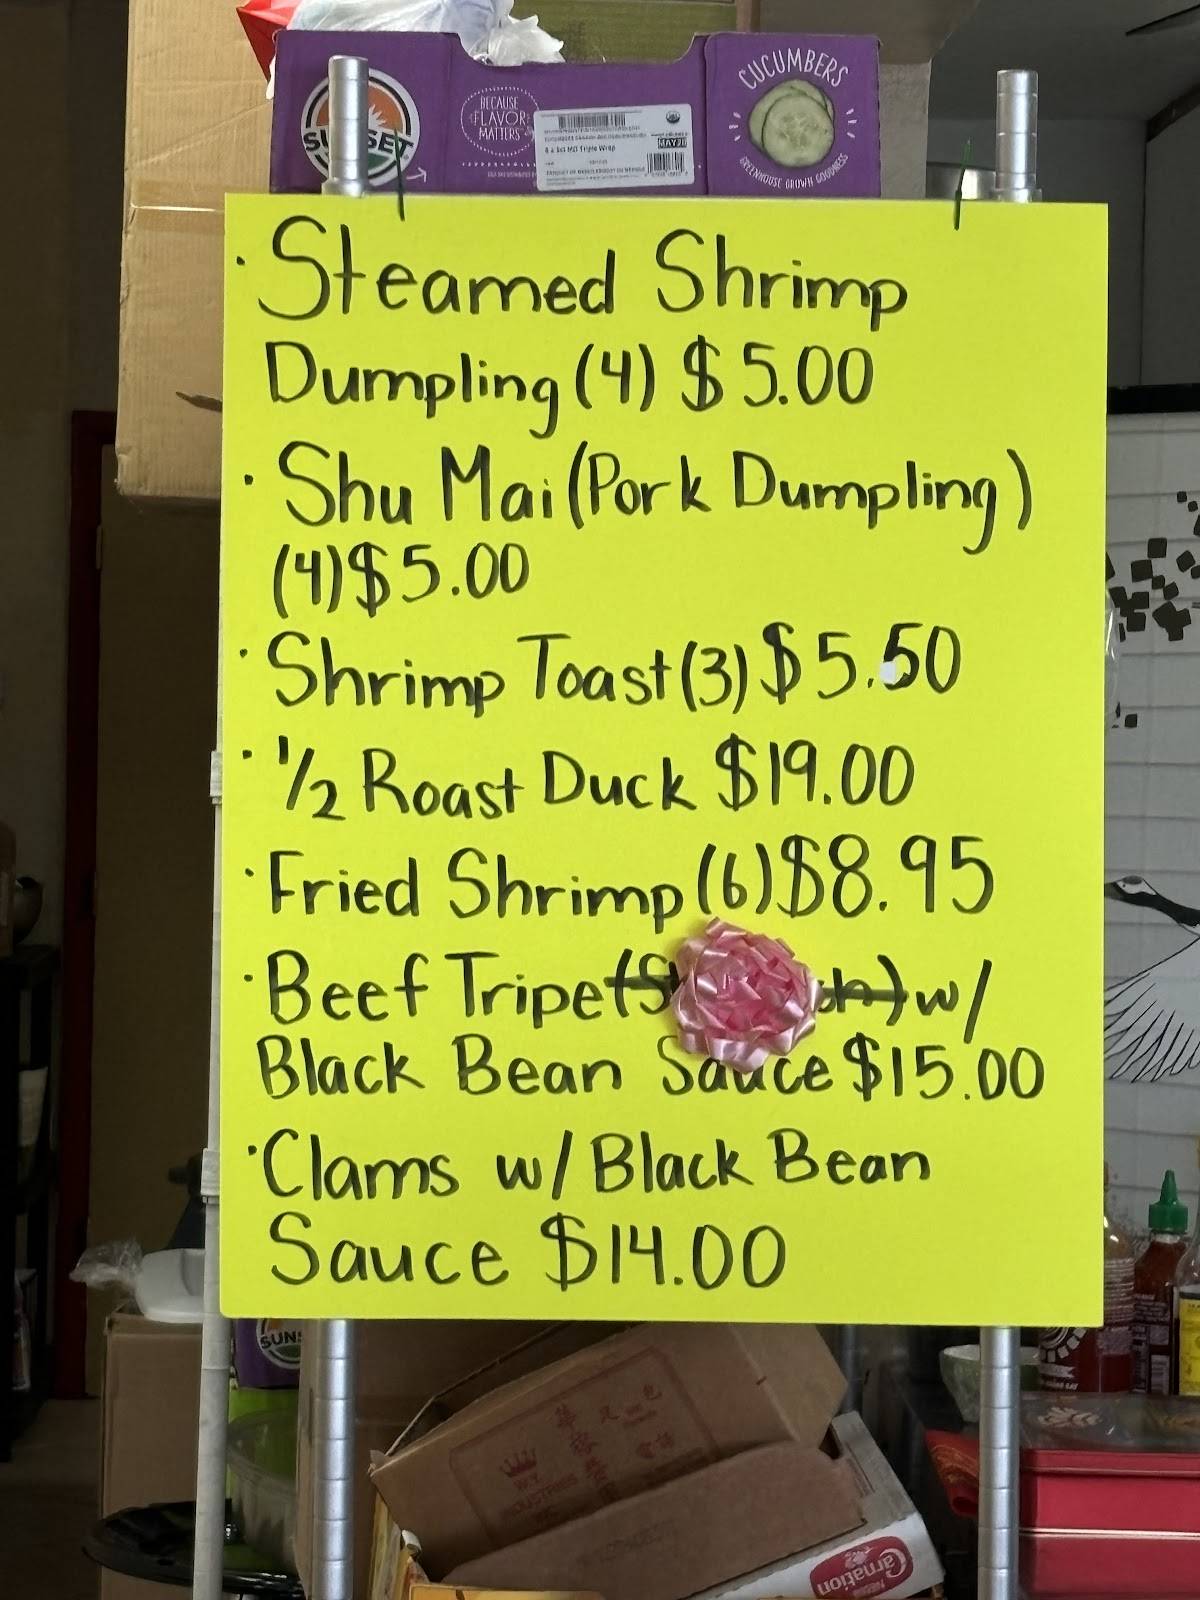 CUCUMBERS
SUNSET
BECAUSE
FLAVOR
MATTERS
MAY 20
GREENHOUSE GROWN GOODNESS
· Steamed Shrimp
Dumpling (4) $5.00
· Shu Mai (Pork Dumpling)
(4) $5.00
· Shrimp Toast (3) $5.50
· 1/2 Roast Duck $19.00
· Fried Shrimp (6) $8.95
· Beef Tripe w/
Black Bean Sauce $15.00
· Clams w/ Black Bean
Sauce $14.00
Carnation